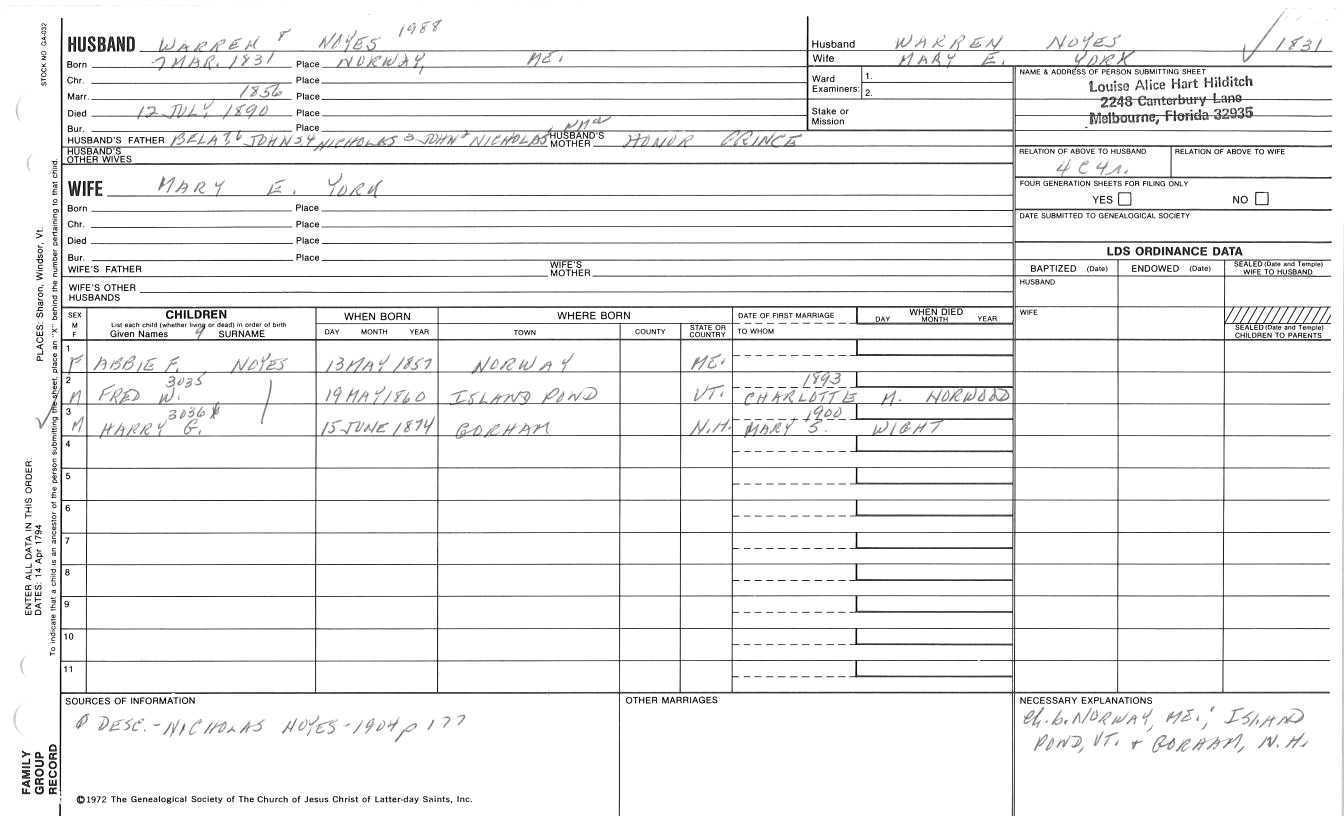 STOCK NO. GA-032
HUSBAND WARREN 8 NOYES 1988
Born 7 MAR. 1831 Place NORWAY, ME.
Chr. Place
Marr. 1856 Place
Died 12 JULY 1890 Place
Bur. Place
HUSBAND'S FATHER BELA 7, 6 JOHN 5,4 NICHOLAS 3 JOHN 2 NICHOLAS 1 HUSBAND'S MOTHER HONOR PRINCE
HUSBAND'S OTHER WIVES
WIFE MARY E. YORK
Born Place
Chr. Place
Died Place
Bur. Place
WIFE'S FATHER WIFE'S MOTHER
WIFE'S OTHER HUSBANDS
Husband WARREN NOYES 1831
Wife MARY E. YORK
Ward Examiners: 1.
2.
Stake or Mission
NAME & ADDRESS OF PERSON SUBMITTING SHEET
Louise Alice Hart Hilditch
2248 Canterbury Lane
Melbourne, Florida 32935
RELATION OF ABOVE TO HUSBAND RELATION OF ABOVE TO WIFE
4 C 4 r.
FOUR GENERATION SHEETS FOR FILING ONLY
YES NO
DATE SUBMITTED TO GENEALOGICAL SOCIETY
LDS ORDINANCE DATA
BAPTIZED (Date) ENDOWED (Date) SEALED (Date and Temple) WIFE TO HUSBAND
HUSBAND
WIFE
SEALED (Date and Temple) CHILDREN TO PARENTS
SEX M F
CHILDREN
List each child (whether living or dead) in order of birth
Given Names 9 SURNAME
WHEN BORN
DAY MONTH YEAR
WHERE BORN
TOWN COUNTY STATE OR COUNTRY
DATE OF FIRST MARRIAGE
TO WHOM
WHEN DIED
DAY MONTH YEAR
1
F ABBIE F. NOYES 13 MAY 1857 NORWAY ME.
2 3035 1893
M FRED W. 19 MAY 1860 ISLAND POND VT. CHARLOTTE M. NORWOOD
3 3036 1900
M HARRY G. 15 JUNE 1874 GORHAM N.H. MARY S. WIGHT
4
5
6
7
8
9
10
11
SOURCES OF INFORMATION
DESC. - NICHOLAS NOYES - 1904 p 177
OTHER MARRIAGES
NECESSARY EXPLANATIONS
ch. b. NORWAY, ME.; ISLAND
POND, VT. + GORHAM, N.H.
©1972 The Genealogical Society of The Church of Jesus Christ of Latter-day Saints, Inc.
FAMILY
GROUP
RECORD
ENTER ALL DATA IN THIS ORDER:
DATES: 14 Apr 1794
PLACES: Sharon, Windsor, Vt.
To indicate that a child is an ancestor of the person submitting the sheet, place an "X" behind the number pertaining to that child.